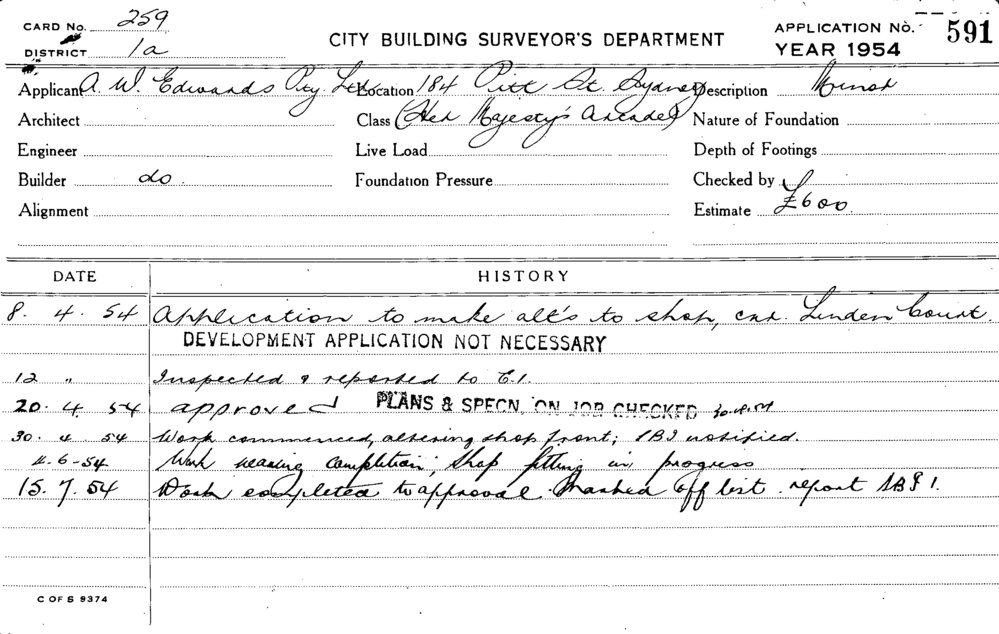 CARD No. 259
DISTRICT 1a
CITY BUILDING SURVEYOR'S DEPARTMENT
APPLICATION No. 591
YEAR 1954
Applicant A. W. Edwards Pty. Ltd. Location 184 Pitt St. Sydney Description Minor
Architect Class (Her Majesty's Arcade) Nature of Foundation
Engineer Live Load Depth of Footings
Builder do. Foundation Pressure Checked by
Alignment Estimate £600.
DATE HISTORY
8. 4. 54 Application to make alt's to shop, cnr. Linden Court.
DEVELOPMENT APPLICATION NOT NECESSARY
12 " Inspected & reported to C.I.
20. 4. 54 approved PLANS & SPECN. ON JOB CHECKED 30.4.54
30. 4. 54 Work commenced, altering shop front; SBI notified.
4-6-54 Work nearing completion; shop fitting in progress
15. 7. 54 Work completed to approval. Marked off list. report SBI.
C OF S 9374